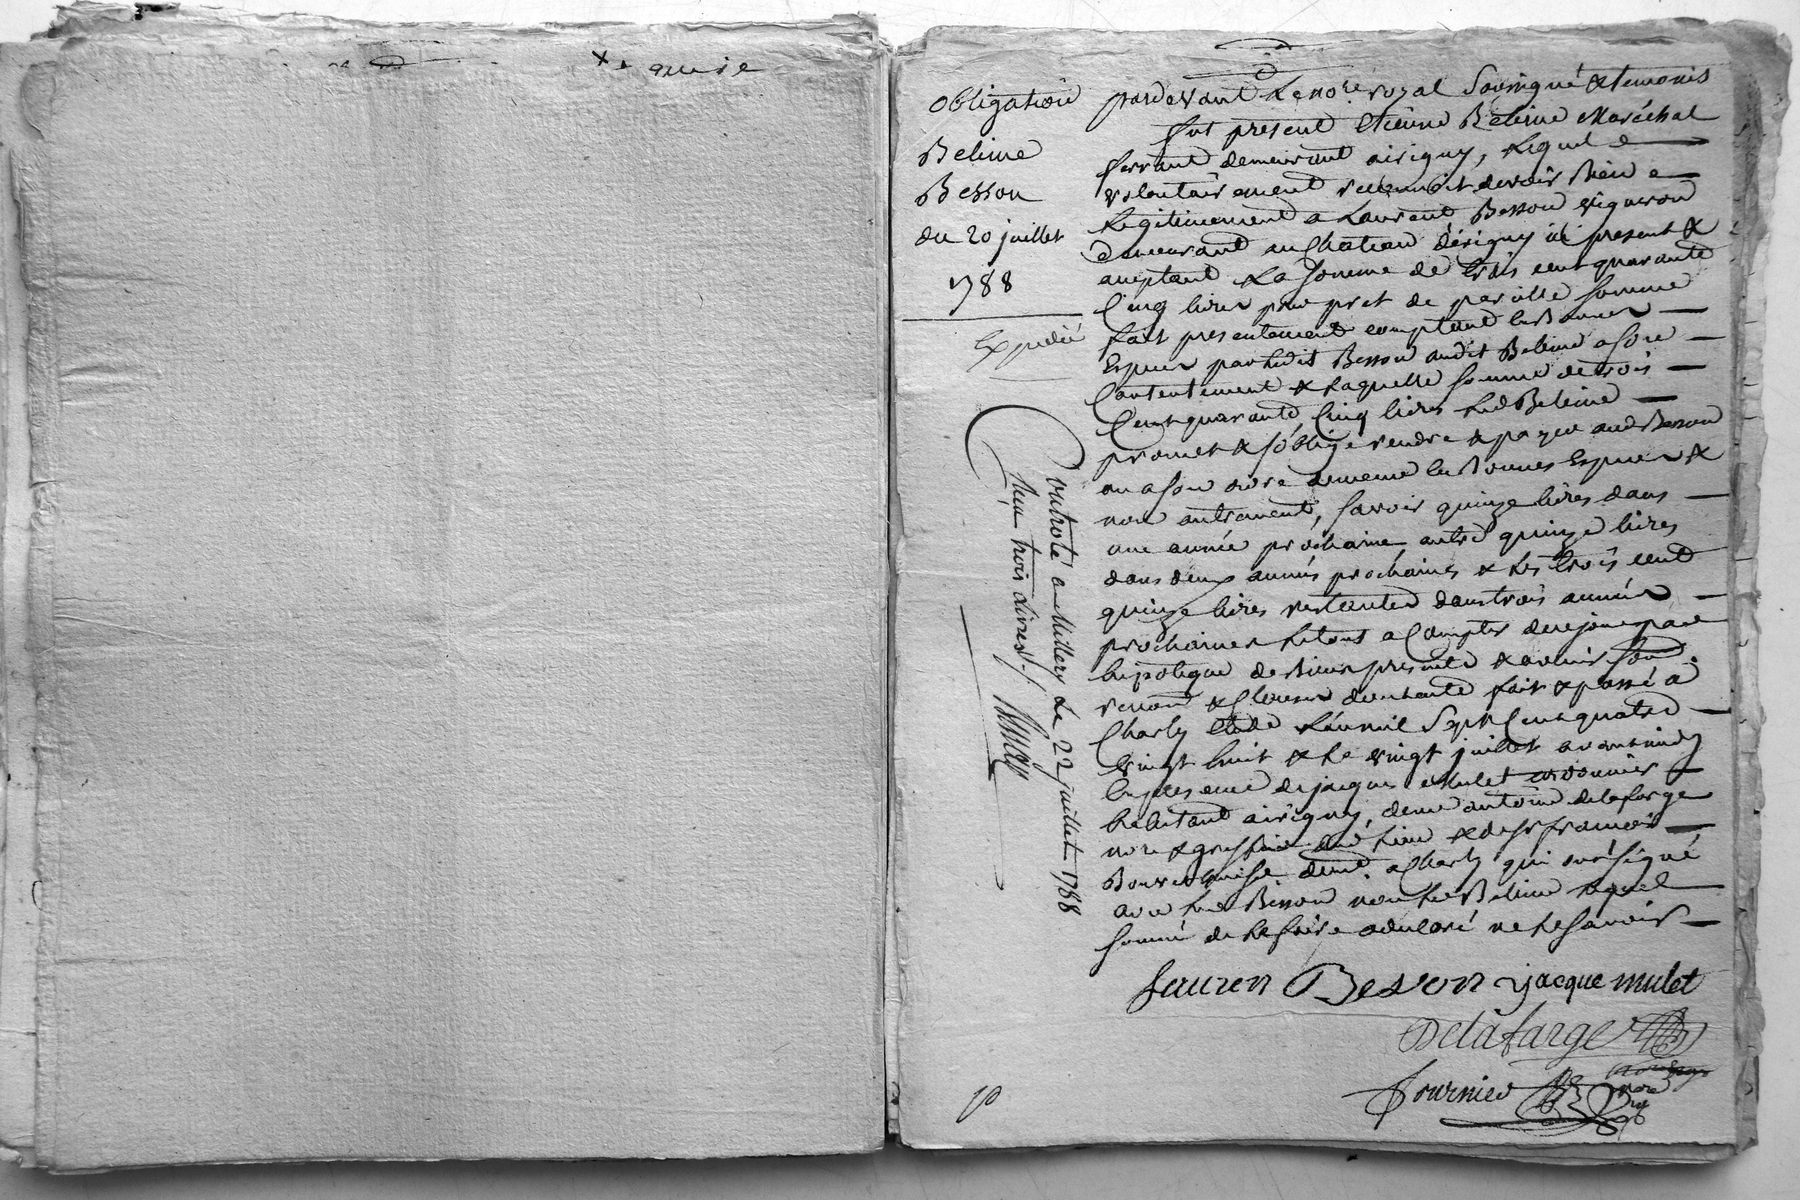 obligation
Belime
Besson
du 20 juillet
1788
Expedié
pardevant Le nore. royal soussigné & temoins
fut present Etienne Belime Maréchal
ferrant demeurant airigny, Lequel
volontairement reconnoit devoir Bien &
Legitimement a Laurent Besson vigneron
demeurant au Chateau d'érigny ici present &
aceptant La somme de trois cent quarante
Cinq livres pour pret de pareille somme
fait presentement comptant En Bonnes
Espéces par Ledit Besson audit Belime a son
Contentement & Laquelle somme de trois
Cent quarante Cinq livres Led Belime
promet & s'oblige rendre & payer aud Besson
ou a son ordre de meme En Bonnes Espéces &
non autrement, savoir quinze livres dans
une année prochaine autre quinze livres
dans deux années prochaines & Les trois cent
quinze livres restantes dans trois années
prochaines Le tout a Compter de ce jour par
hipotéque de Biens presents & avenir
renon & Clauses fait & passé à
Charly Etude L'an mil Sept Cent quatre
vingt huit & Le vingt juillet avant midy
En presence de jacques Mulet cordonnier
habitant airigny, de me antoine delafarge
nore & greffier dud Lieu & de sr françois
demt. a Charly qui ont signé
avec Led Besson non Led Belime Lequel
sommé de Le faire a declaré ne Le savoir
Lauren Besson jacque mulet
Delafarge
Fournier nore
Controlé a Millery Le 22 juillet 1788
Reçu trois Livres